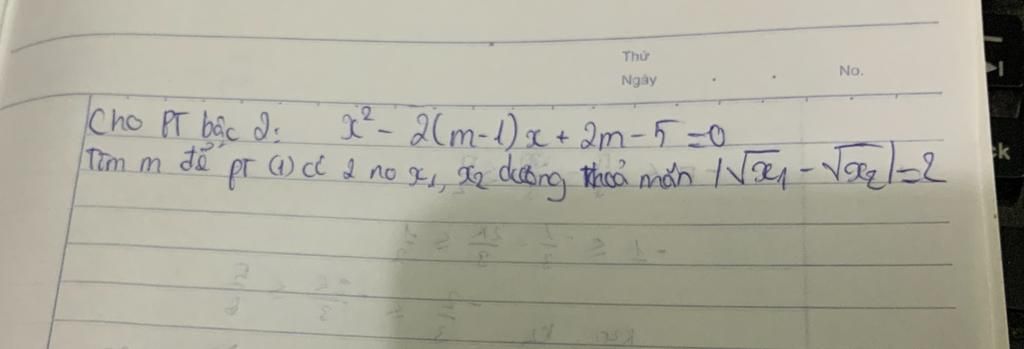 Thứ
Ngày . . No.
Cho PT bậc 2: x² - 2(m-1)x + 2m - 5 = 0
Tìm m để pt (1) có 2 no x₁, x₂ dương thoả mãn |√x₁ - √x₂| = 2